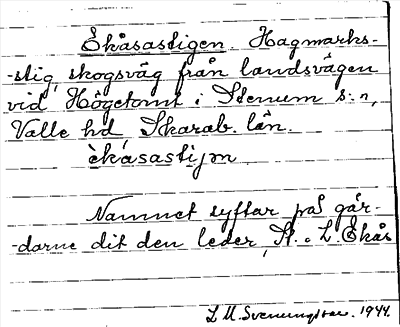 Ekåsastigen. Hagmarks-
-stig, skogsväg från landsvägen
vid Högetomt i Stenum s:n,
Valle hd Skarab. län.
èkåsastijən
Namnet syftar på går-
-darne dit den leder, St. o. L. Ekås
L M. Svenungsson. 1944.